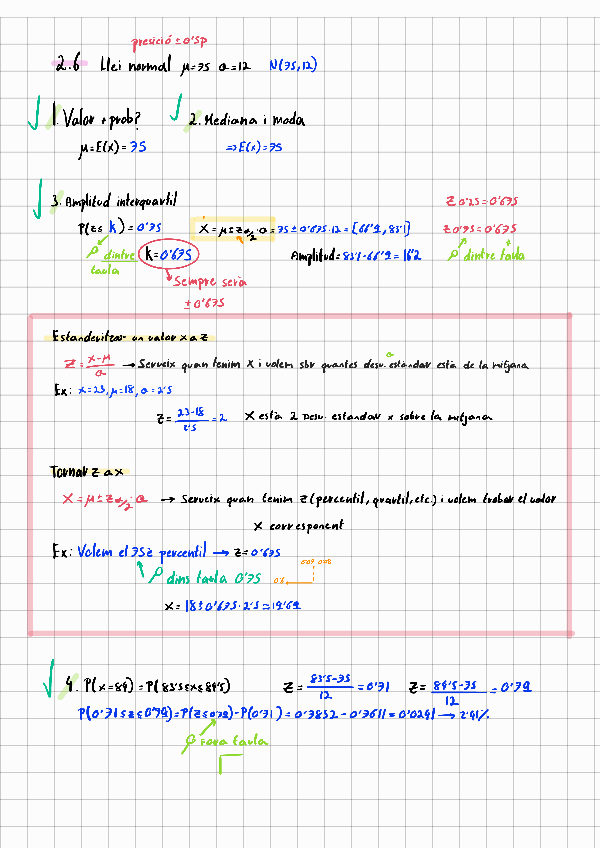 presició ±0'5p
2.6 Llei normal μ=75 σ=12 N(75,12)
1. Valor + prob? 2. Mediana i moda
μ=E(x)=75 ⇒E(x)=75
3. Amplitud interquartil
Z 0'25=0'675
P(z≤ k)=0'75 X=μ±z α/2·σ=75±0'675·12=[66'9, 83'1] Z 0'75=0'675
dintre taula k=0'675 Amplitud=83'1-66'9=16'2 dintre taula
Sempre serà
±0'675
Estanderitzar un valor x a z
Z=x-μ/σ → Serveix quan tenim X i volem sbr quantes desv. estàndar està de la mitjana
Ex: x=23, μ=18, σ=2'5
Z=23-18/2'5=2 X està 2 Desv. estandar x sobre la mitjana
Tornar z a x
X=μ±z α/2·σ → Serveix quan tenim z (percentil, quartil, etc.) i volem trobar el valor
X corresponent
Ex: Volem el 75è percentil → z=0'675
dins taula 0'75
X= 18±0'675·2'5=19'69
4. P(x=84)=P(83'5≤x≤84'5) Z=83'5-75/12=0'71 Z=84'5-75/12=0'79
P(0'71≤z≤0'79)=P(z≤0'79)-P(0'71)=0'7852-0'7611=0'0241→2'41%
fora taula